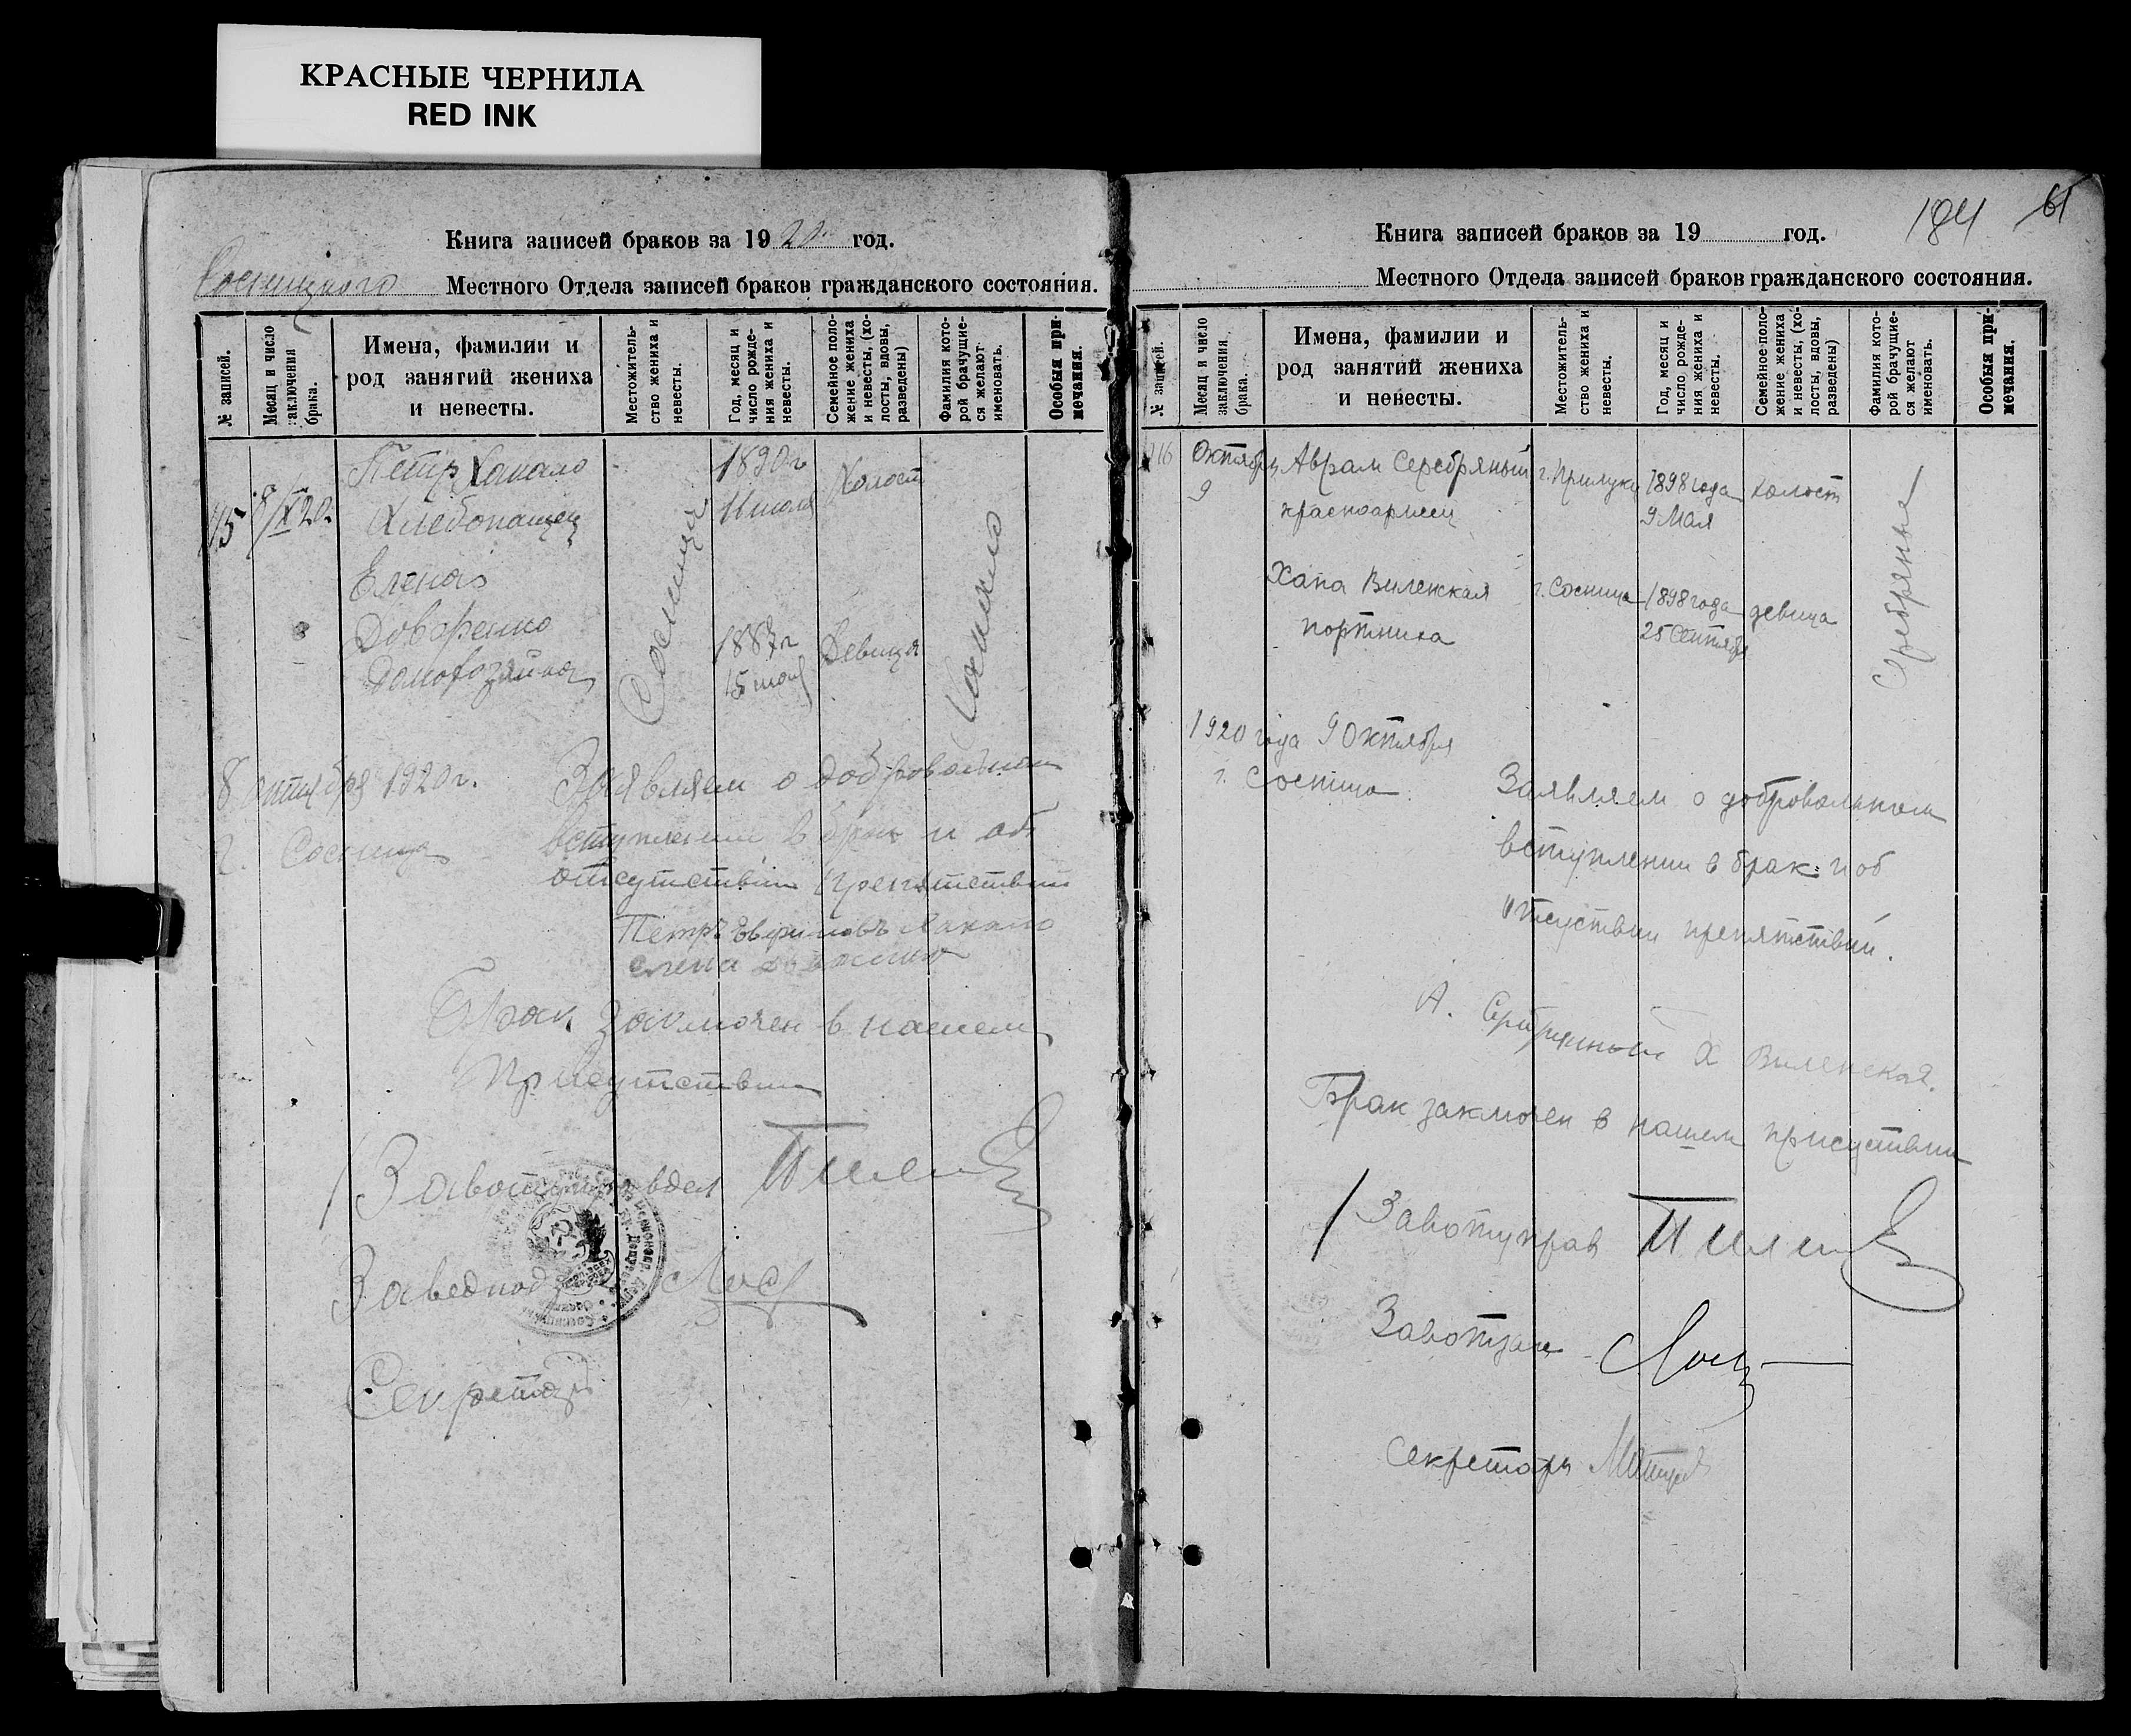 КРАСНЫЕ ЧЕРНИЛА
RED INK
Книга записей браков за 1920 год.
Сосницкого Местного Отдела записей браков гражданского состояния.
№ записей.
Месяц и число заключения брака.
Имена, фамилии и
род занятий жениха
и невесты.
Местожитель-
ство жениха и
невесты.
Год, месяц и
число рожде-
ния жениха и
невесты.
Семейное поло-
жение жениха
и невесты, (хо-
лосты, вдовы,
разведены)
Фамилия кото-
рой брачущие-
ся желают
именовать.
Особыя при-
мечания.
Петр
1890г
Холост
Хлебопашец
Елена
Домохозяйка
15
Девица
8 октября 1920г.
г. Сосница
Заявляем о добровольном
вступлении в брак и об
отсутствии препятствий
Петръ
Елена
Брак заключен в нашем
присутствии
Секретарь
184 61
Книга записей браков за 19 год.
Местного Отдела записей браков гражданского состояния.
№ записей.
Месяц и число
заключения
брака.
Имена, фамилии и
род занятий жениха
и невесты.
Местожитель-
ство жениха и
невесты.
Год, месяц и
число рожде-
ния жениха и
невесты.
Семейное поло-
жение жениха
и невесты, (хо-
лосты, вдовы,
разведены)
Фамилия кото-
рой брачущие-
ся желают
именовать.
Особыя при-
мечания.
Октябрь Аврам Серебряный г. Прилуки 1898 года холост
9 красноармеец 9 Мая
Серебряные
Хана Виленская г. Сосница 1898 года девица
портниха 25 Сентября
1920 года 9 Октября
г. Сосница
Заявляем о добровольном
вступлении в брак и об
отсуствии препятствий.
А. Серебряный Х Виленская.
Брак заключен в нашем присуствии
Завотуправ
Секретарь